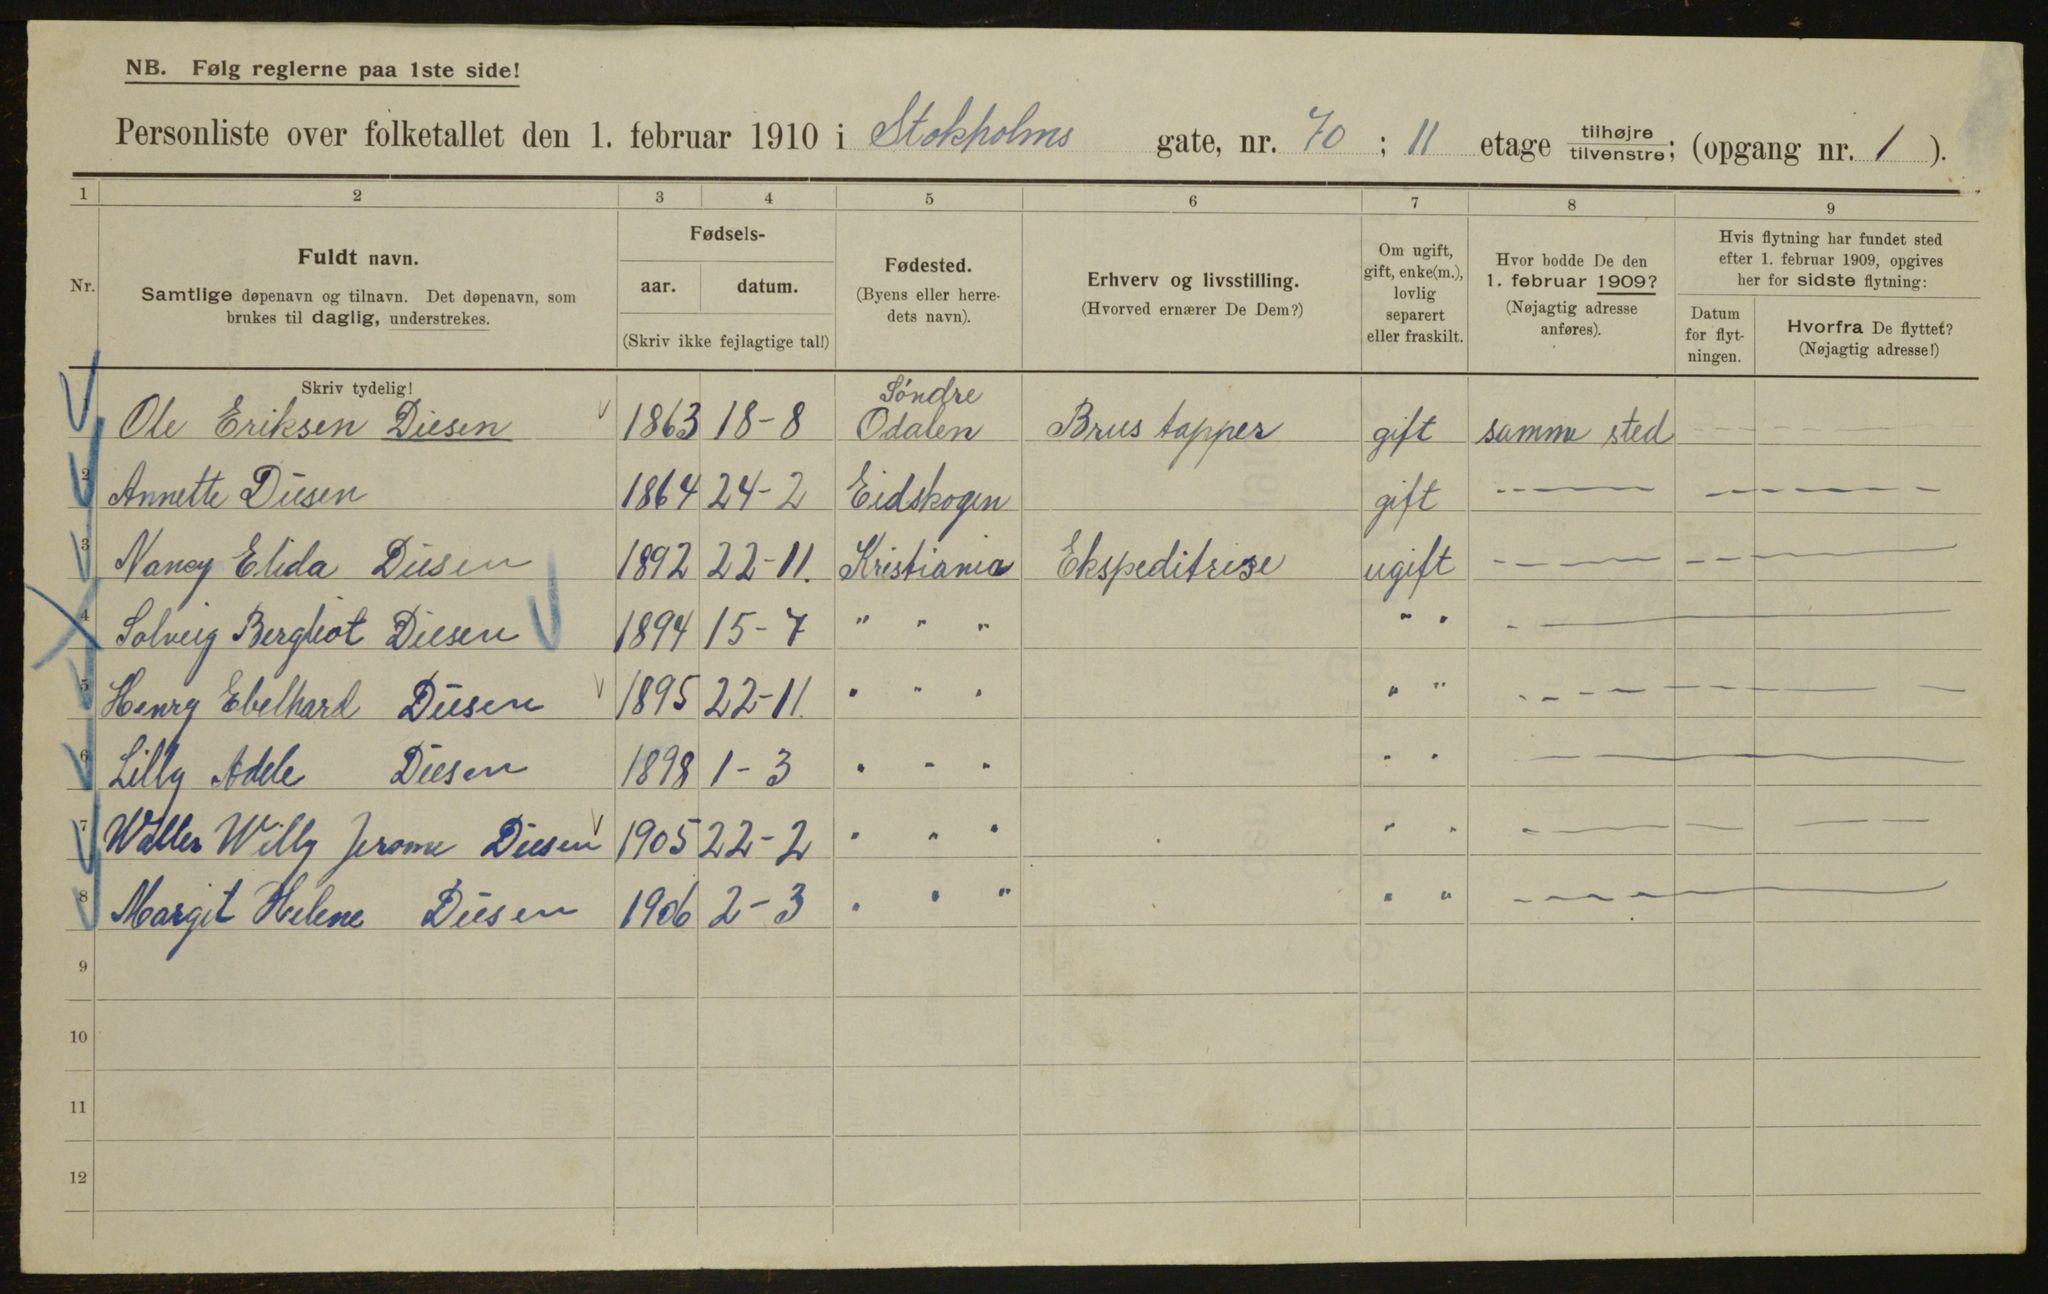 NB. Følg reglerne paa 1ste side!
Personliste over folketallet den 1. februar 1910 i Stokholms gate, nr. 70 ; 11 etage tilhøjre / tilvenstre; (opgang nr. 1 ).
1 2 3 4 5 6 7 8 9
Nr.
Fuldt navn.
Samtlige døpenavn og tilnavn. Det døpenavn, som
brukes til daglig, understrekes.
Fødsels-
aar. datum.
(Skriv ikke fejlagtige tal!)
Fødested.
(Byens eller herre-
dets navn).
Erhverv og livsstilling.
(Hvorved ernærer De Dem?)
Om ugift,
gift, enke(m.),
lovlig
separert
eller fraskilt.
Hvor bodde De den
1. februar 1909?
(Nøjagtig adresse
anføres).
Hvis flytning har fundet sted
efter 1. februar 1909, opgives
her for sidste flytning:
Datum
for flyt-
ningen.
Hvorfra De flyttet?
(Nøjagtig adresse!)
Skriv tydelig!
Ole Eriksen Diesen 1863 18-8 Söndre Odalen Brus tapper gift samme sted
2 Annette Diesen 1864 24-2 Eidskogen gift
3 Nancy Elida Diesen 1892 22-11. Kristiania Ekspeditrise ugift
4 Solveig Bergliot Diesen 1894 15-7 " " " " "
5 Henry Ebelhard Diesen 1895 22-11. " " " " "
6 Lilly Adele Diesen 1898 1-3 " " " " "
7 Walter Willy Jerome Diesen 1905 22-2 " " " " "
8 Margit Helene Diesen 1906 2-3 " " " " "
9
10
11
12